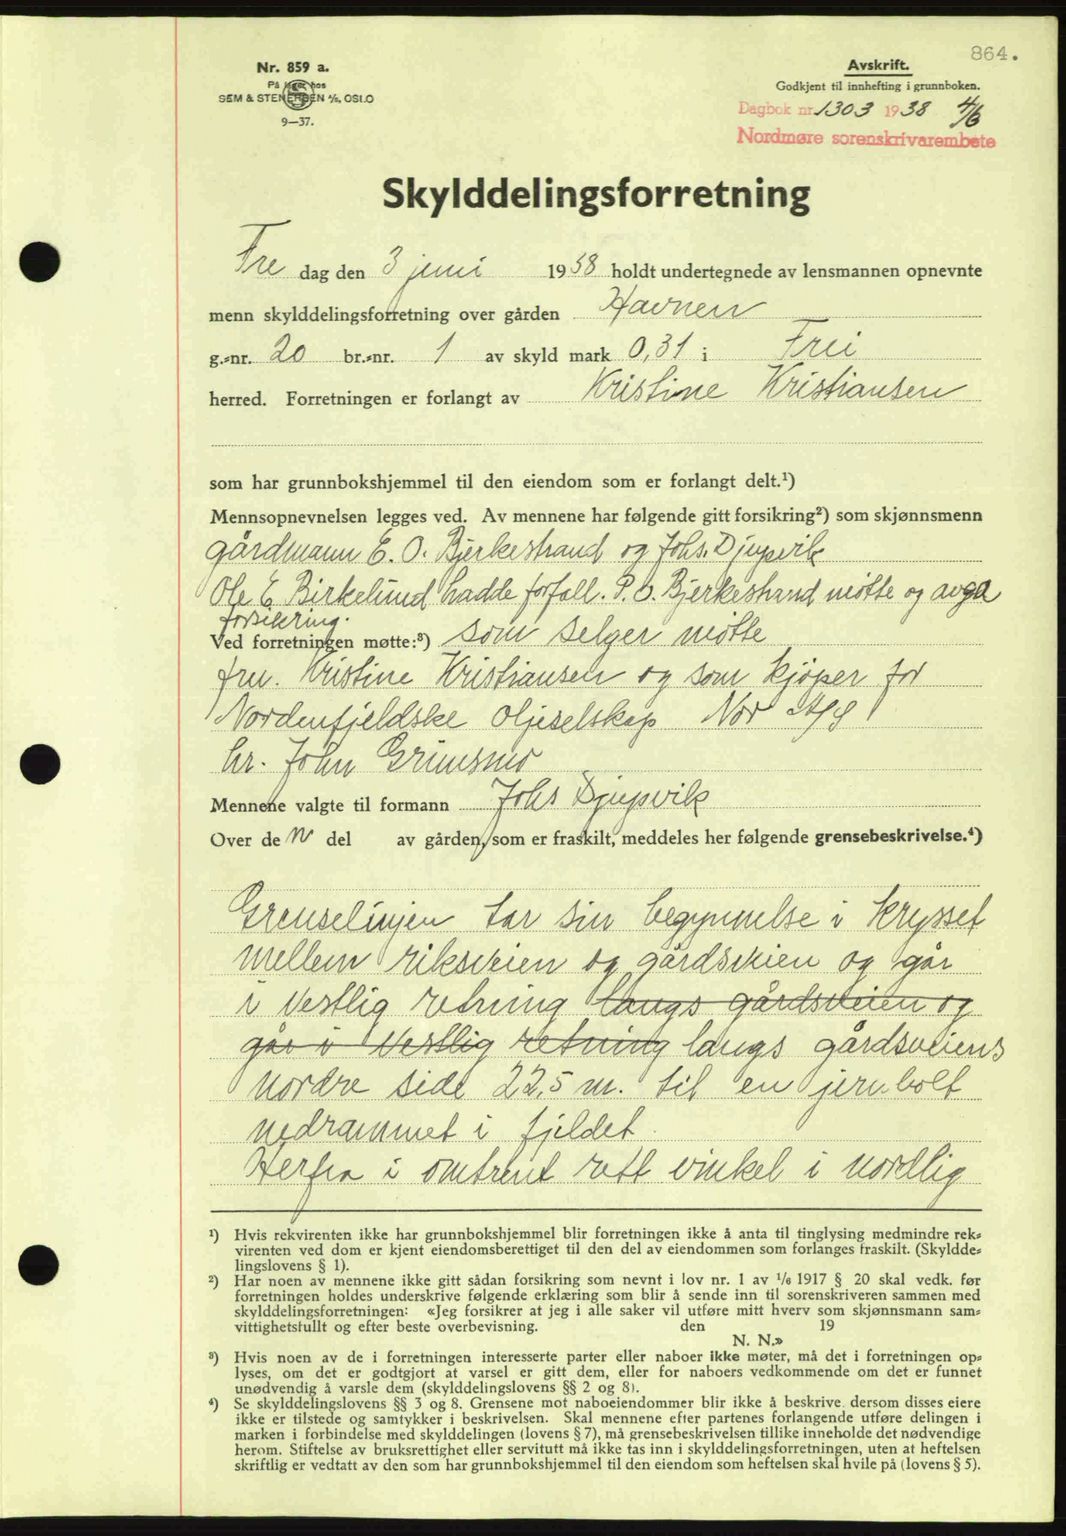 864.
Nr. 859 a.
På lager hos
SEM & STENERSEN A/S, OSLO
9—37.
Avskrift.
Godkjent til innhefting i grunnboken.
Dagbok nr. 1303 1938 4/6
Nordmøre sorenskrivarembete
Skylddelingsforretning
Fre dag den 3 juni 1938 holdt undertegnede av lensmannen opnevnte
menn skylddelingsforretning over gården Havnen
g.-nr. 20 br.-nr. 1 av skyld mark 0,31 i Frei
herred. Forretningen er forlangt av Kristine Kristiansen
som har grunnbokshjemmel til den eiendom som er forlangt delt.¹)
Mennsopnevnelsen legges ved. Av mennene har følgende gitt forsikring²) som skjønnsmenn
gårdmann E. O. Bjerkestrand og Johs. Djupvik
Ole E Birkelund hadde forfall. P. O. Bjerkestrand møtte og avga
forsikring.
Ved forretningen møtte:³) som selger møtte
fru. Kristine Kristiansen og som kjøper for
Nordenfjeldske oljeselskap Nor A/S
hr. John Grimsmo
Mennene valgte til formann Johs Djupvik
Over de n del av gården, som er fraskilt, meddeles her følgende grensebeskrivelse.⁴)
Grenselinjen tar sin begynnelse i krysset
mellem riksveien og gårdsveien og går
i vestlig retning langs gårdsveien og
går i vestlig retning langs gårdsveiens
nordre side 22,5 m. til en jernbolt
nedrammet i fjeldet.
Herfra i omtrent rett vinkel i nordlig
¹) Hvis rekvirenten ikke har grunnbokshjemmel blir forretningen ikke å anta til tinglysing medmindre rek-
virenten ved dom er kjent eiendomsberettiget til den del av eiendommen som forlanges fraskilt. (Skyldde-
lingslovens § 1).
²) Har noen av mennene ikke gitt sådan forsikring som nevnt i lov nr. 1 av 1/6 1917 § 20 skal vedk. før
forretningen holdes underskrive følgende erklæring som blir å sende inn til sorenskriveren sammen med
skylddelingsforretningen: «Jeg forsikrer at jeg i alle saker vil utføre mitt hverv som skjønnsmann sam-
vittighetsfullt og efter beste overbevisning. den 19
N. N.»
³) Hvis noen av de i forretningen interesserte parter eller naboer ikke møter, må det i forretningen op-
lyses, om det er godtgjort at varsel er gitt dem, eller for naboers vedkommende om det er funnet
unødvendig å varsle dem (skylddelingslovens §§ 2 og 8).
⁴) Se skylddelingslovens §§ 3 og 8. Grensene mot naboeiendommer blir ikke å beskrive, dersom disses eiere
ikke er tilstede og samtykker i beskrivelsen. Skal mennene efter partenes forlangende utføre delingen i
marken i forbindelse med skylddelingen (lovens § 7), må grensebeskrivelsen tillike inneholde det nødvendige
herom. Stiftelse av bruksrettighet eller servitutt må ikke tas inn i skylddelingsforretningen, uten at heftelsen
skriftlig er vedtatt av den som har grunnbokshjemmel til den eiendom som heftelsen skal hvile på (lovens § 5).